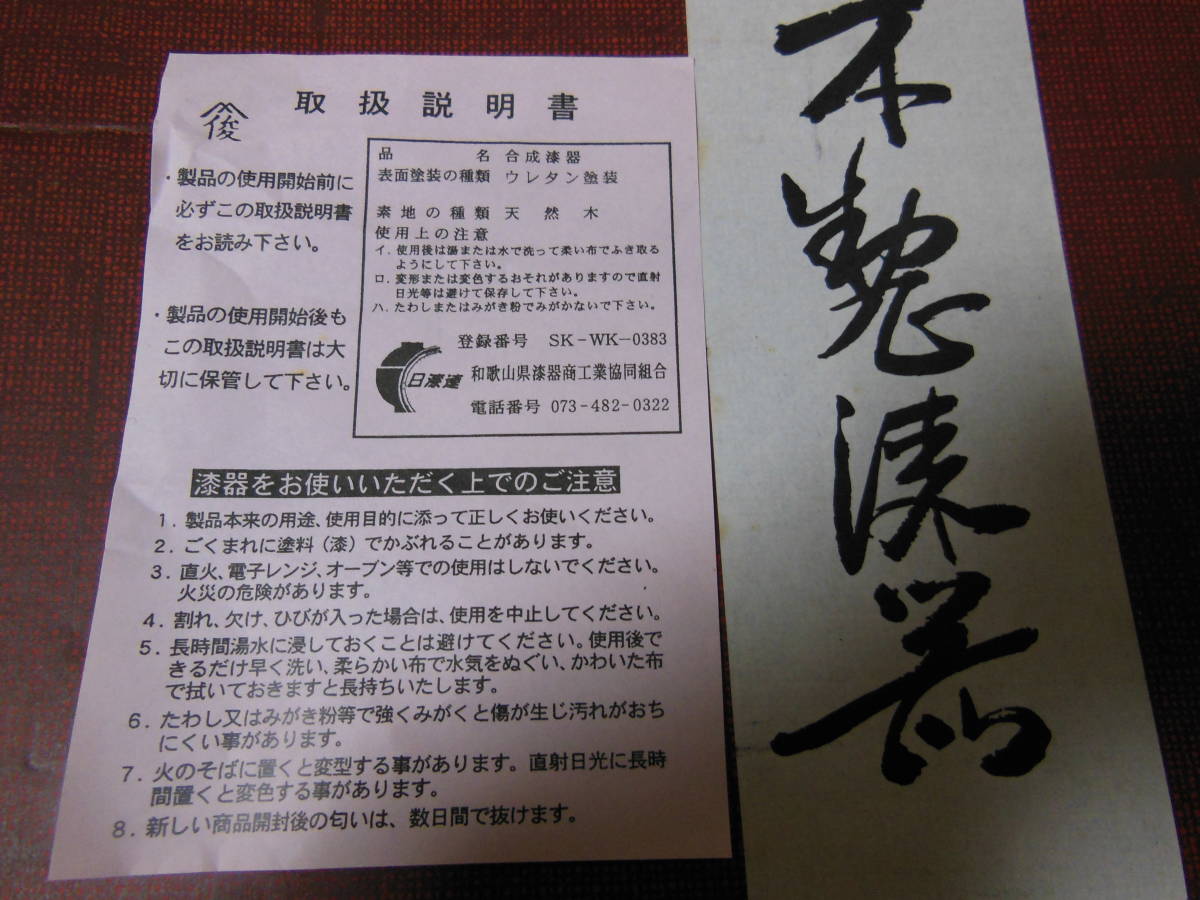 取扱説明書
俊
・製品の使用開始前に
必ずこの取扱説明書
をお読み下さい。
・製品の使用開始後も
この取扱説明書は大
切に保管して下さい。
品名 合成漆器
表面塗装の種類 ウレタン塗装
素地の種類 天然木
使用上の注意
イ. 使用後は湯または水で洗って柔い布でふき取る
ようにして下さい。
ロ. 変形または変色するおそれがありますので直射
日光等は避けて保存して下さい。
ハ. たわしまたはみがき粉でみがかないで下さい。
登録番号 SK-WK-0383
日漆連
和歌山県漆器商工業協同組合
電話番号 073-482-0322
漆器をお使いいただく上でのご注意
1. 製品本来の用途、使用目的に添って正しくお使いください。
2. ごくまれに塗料（漆）でかぶれることがあります。
3. 直火、電子レンジ、オーブン等での使用はしないでください。
火災の危険があります。
4. 割れ、欠け、ひびが入った場合は、使用を中止してください。
5. 長時間湯水に浸しておくことは避けてください。使用後で
きるだけ早く洗い、柔らかい布で水気をぬぐい、かわいた布
で拭いておきますと長持ちいたします。
6. たわし又はみがき粉等で強くみがくと傷が生じ汚れがおち
にくい事があります。
7. 火のそばに置くと変型する事があります。直射日光に長時
間置くと変色する事があります。
8. 新しい商品開封後の匂いは、数日間で抜けます。
木製漆器